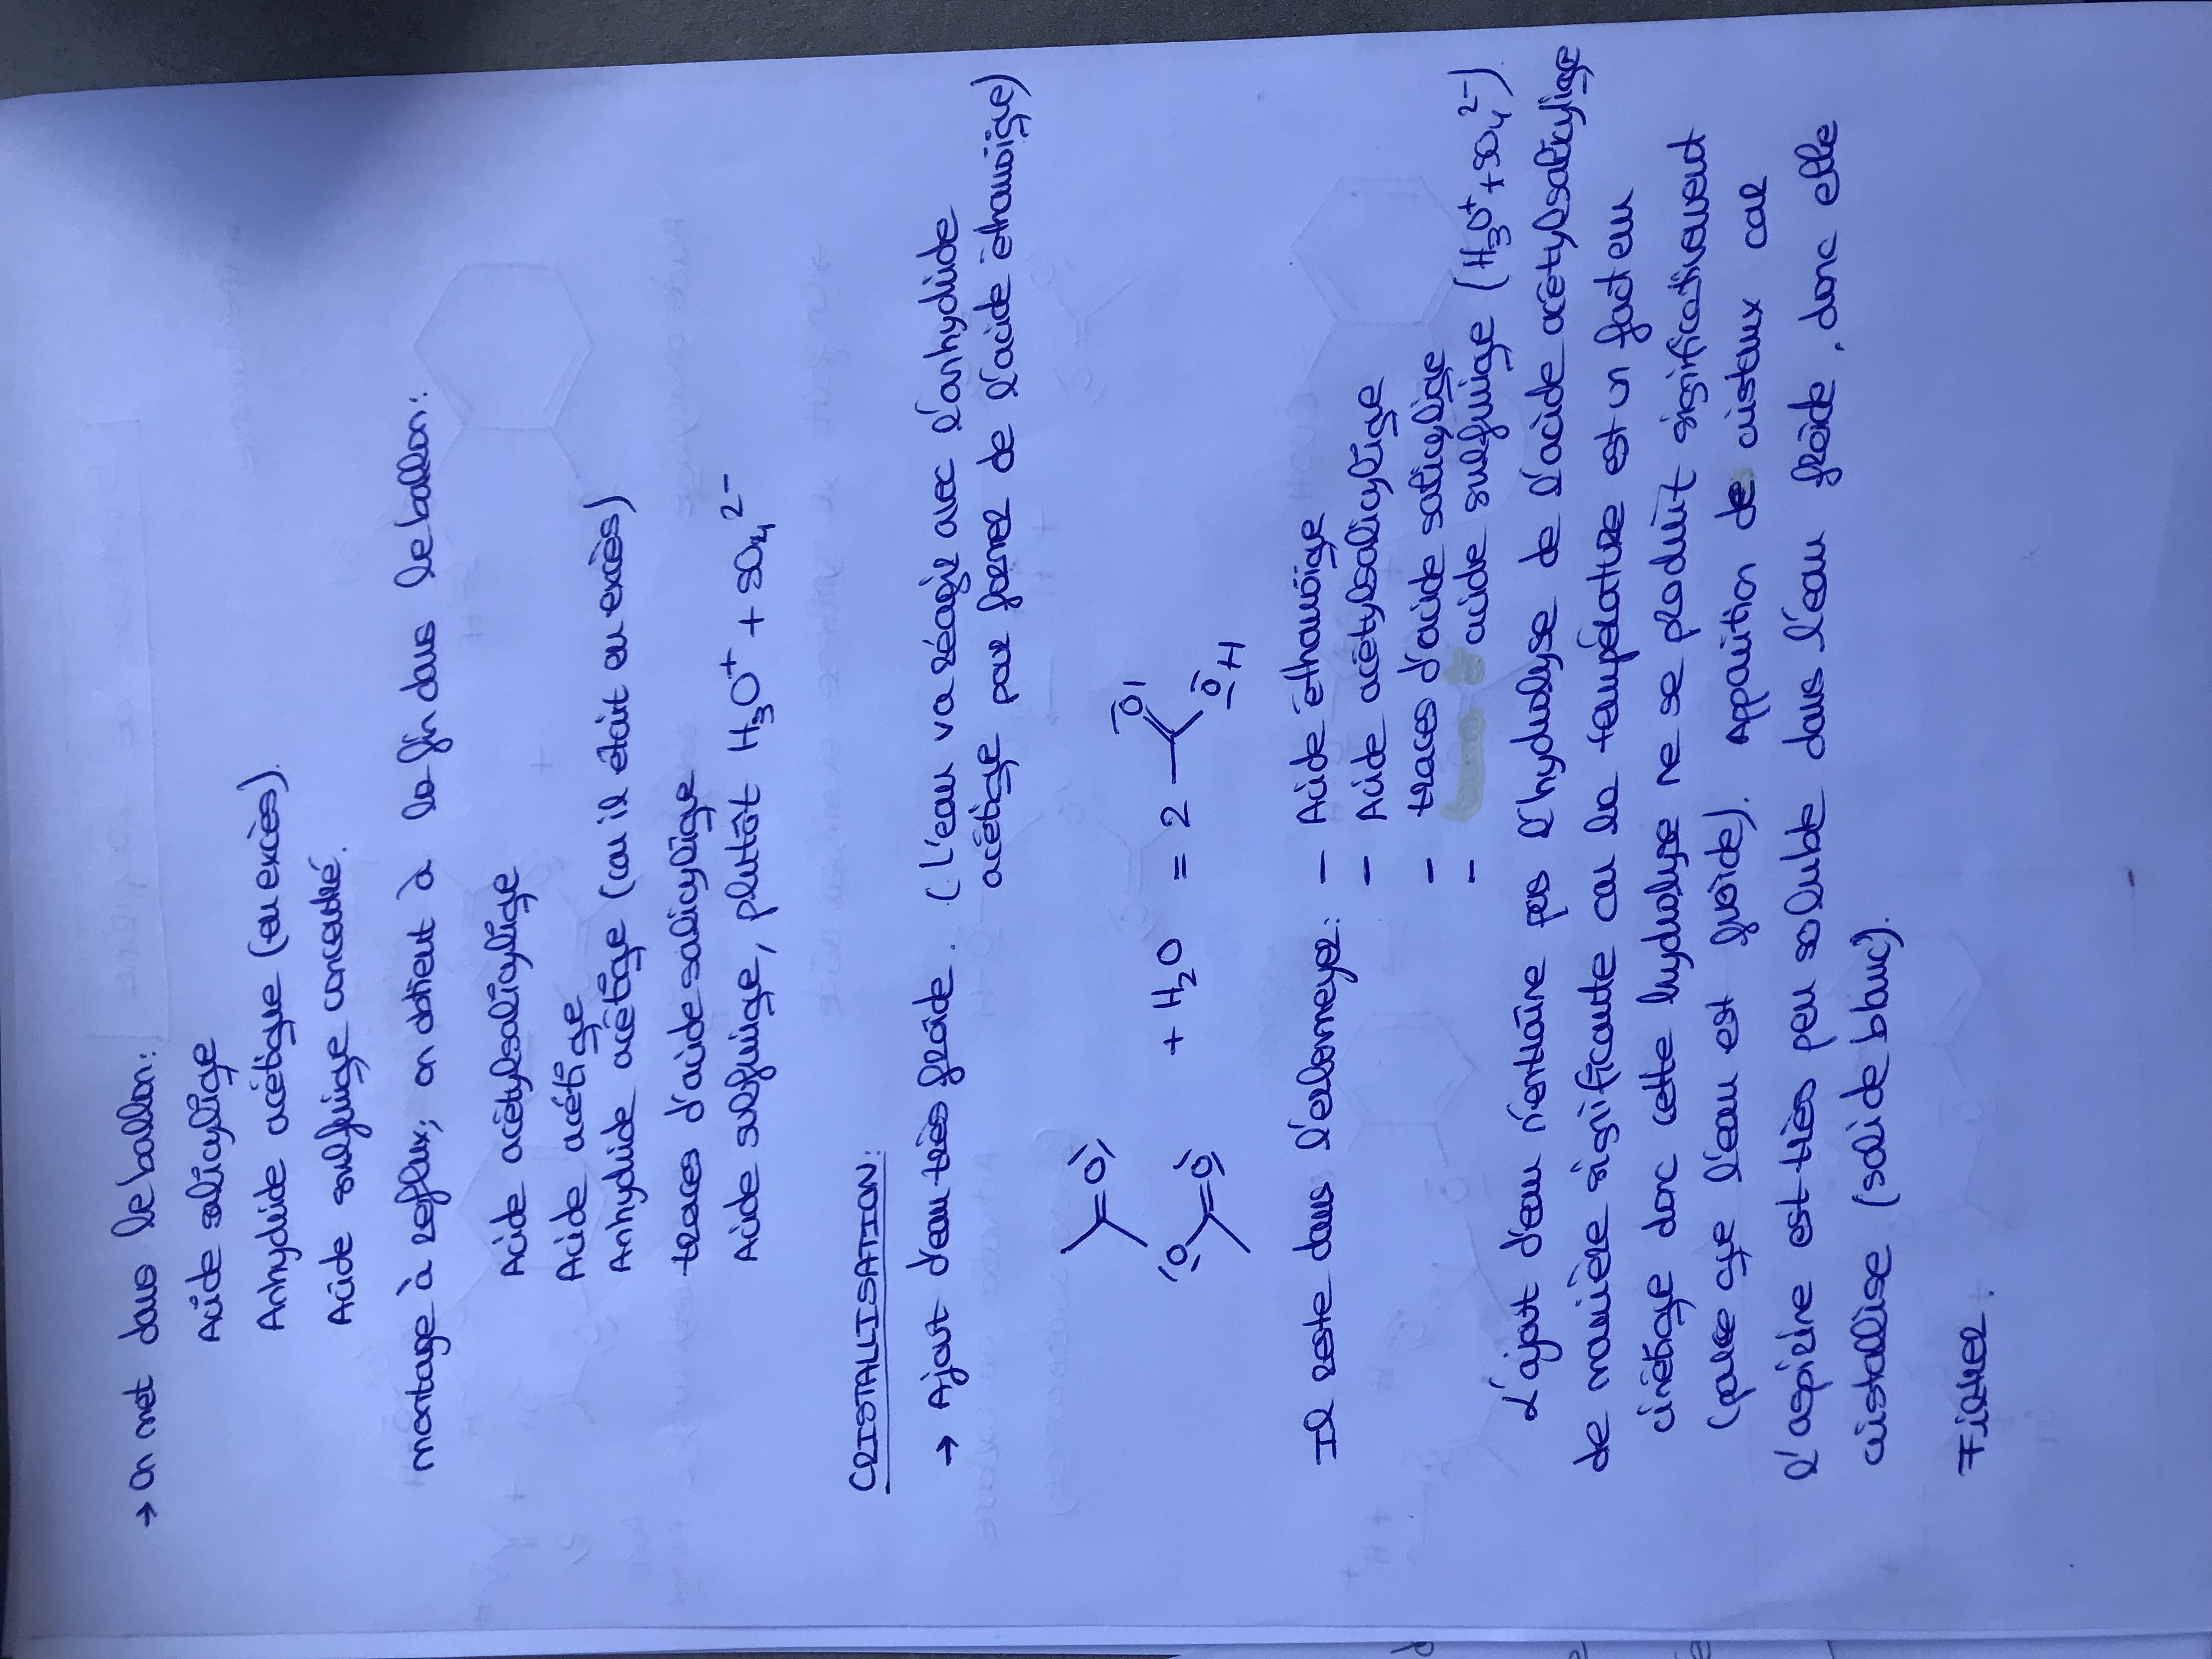 → On met dans le ballon:
Acide salicylique
Anhydride acétique (en excès).
Acide sulfurique concentré.
montage à reflux; on obtient à la fin dans le ballon:
Acide acétylsalicylique
Acide acétique
Anhydride acétique (car il était en excès)
traces d'acide salicylique
Acide sulfurique, plutôt H₃O⁺ + SO₄²⁻
CRISTALLISATION:
→ Ajout d'eau très froide. (L'eau va réagir avec l'anhydride
acétique pour former de l'acide éthanoïque)
O
O
O
+ H₂O = 2
O
OH
Il reste dans l'erlenmeyer: – Acide éthanoïque
– Acide acétylsalicylique
– traces d'acide salicylique
– acide sulfurique (H₃O⁺ + SO₄²⁻).
L'ajout d'eau n'entraîne pas l'hydrolyse de l'acide acétylsalicylique
de manière significante car la température est un facteur
cinétique donc cette hydrolyse ne se produit significativement
(parce que l'eau est froide). Apparition de cristaux car
l'aspirine est très peu soluble dans l'eau froide, donc elle
cristallise (solide blanc).
Filtrer.